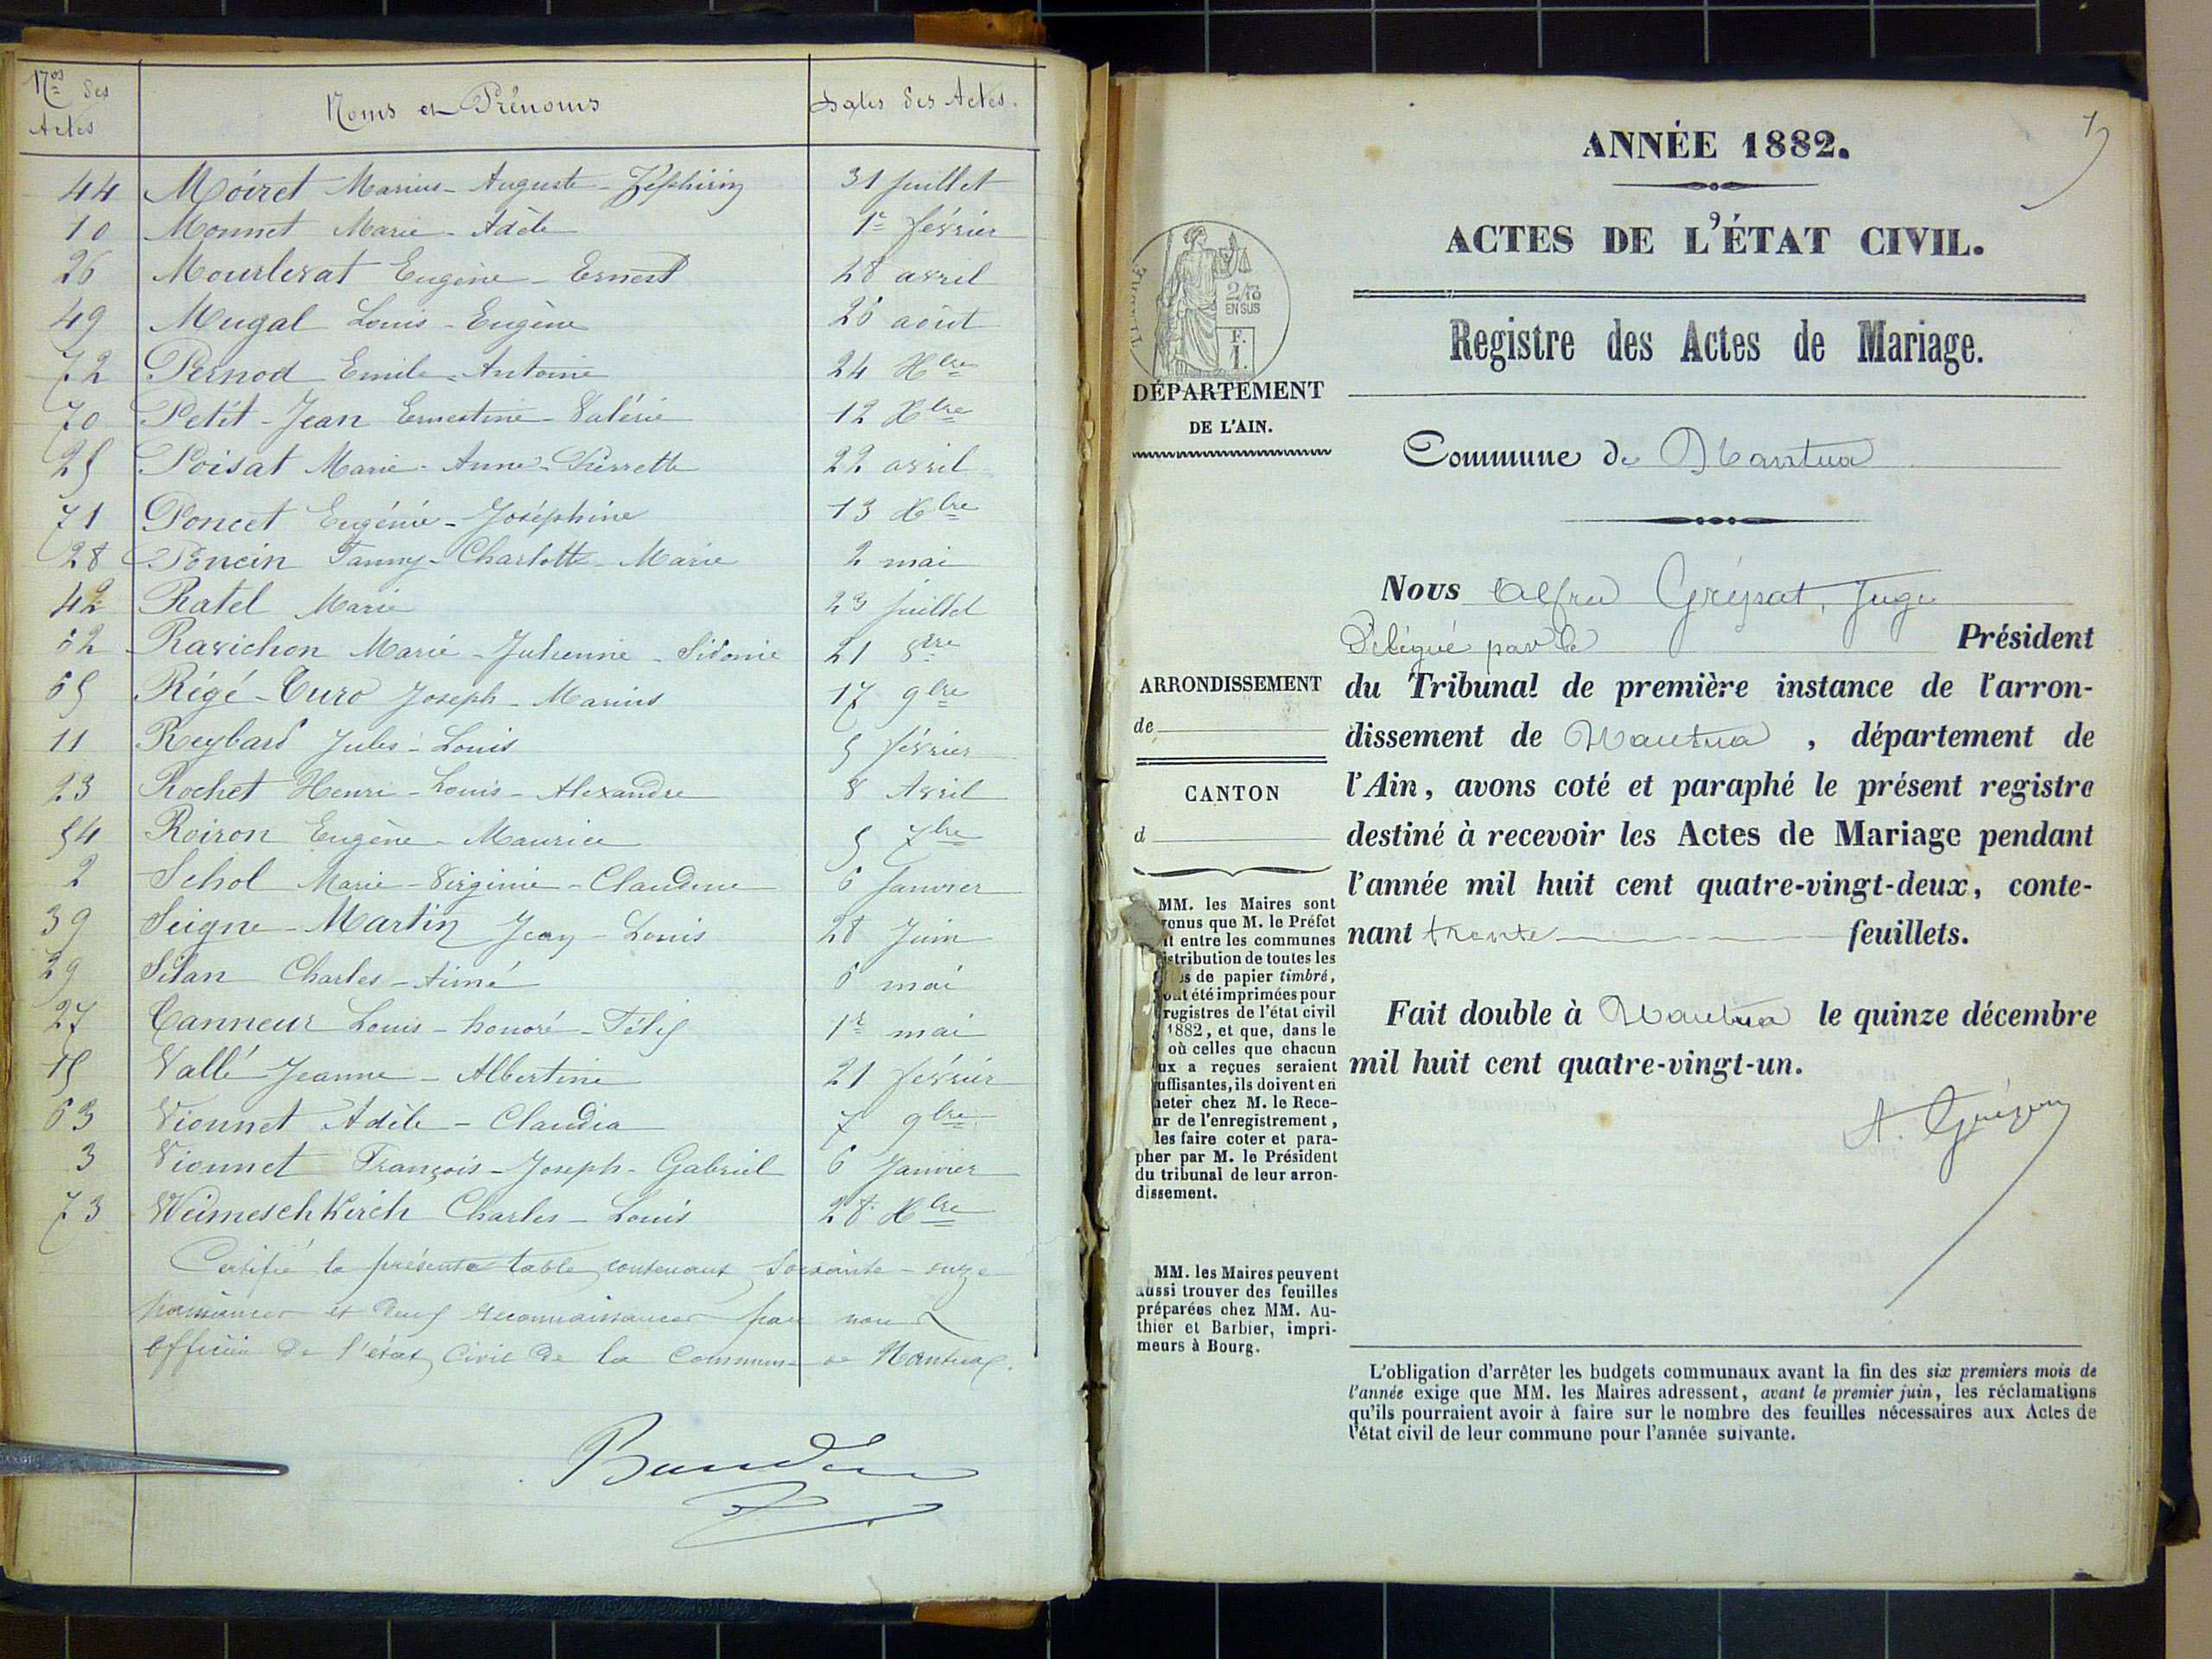 Nos des Actes
Noms et Prénoms
Dates des Actes.
44 Moiret Marius-Auguste-Zéphirin 31 Juillet
10 Monnet Marie-Adèle 1er février
26 Mourlevat Eugène-Ernest 28 avril
49 Mugal Louis-Eugène 20 août
72 Pernod Emile-Antoine 24 Xbre
70 Petit-Jean Ernestine-Valérie 12 Xbre
25 Poisat Marie-Anne-Pierrette 22 avril
71 Poncet Eugénie-Joséphine 13 Xbre
28 Poncin Fanny-Charlotte-Marie 2 mai
42 Ratel Marie 23 juillet
62 Ravichon Marie-Julienne-Sidonie 21 8bre
65 Régé-Turo Joseph-Marius 17 9bre
11 Reybard Jules-Louis 5 février
23 Rochet Henri-Louis-Alexandre 8 Avril
54 Roiron Eugène-Maurice 5 7bre
2 Schol Marie-Virginie-Claudine 6 Janvier
39 Seigne-Martin Jean-Louis 28 Juin
29 Silan Charles-Aimé 6 mai
27 Tanneur Louis-honoré-Félix 1er mai
15 Vallé Jeanne-Albertine 21 février
63 Vionnet Adèle-Claudia 7 9bre
3 Vionnet François-Joseph-Gabriel 6 Janvier
73 Weimeschkirch Charles-Louis 28 Xbre
Certifié la présente table contenant soixante-onze
naissances et deux reconnaissances par nous
officier de l'état Civil de la Commune de Nantua.
1
ANNÉE 1882.
ACTES DE L'ÉTAT CIVIL.
Registre des Actes de Mariage.
2/10
EN SUS
F.
1.
DÉPARTEMENT
DE L'AIN.
Commune de Nantua
Nous Alfred Grépat, Juge
Délégué par le Président
du Tribunal de première instance de l'arron-
dissement de Nantua, département de
l'Ain, avons coté et paraphé le présent registre
destiné à recevoir les Actes de Mariage pendant
l'année mil huit cent quatre-vingt-deux, conte-
nant trente feuillets.
Fait double à Nantua le quinze décembre
mil huit cent quatre-vingt-un.
ARRONDISSEMENT
de
CANTON
d
MM. les Maires sont
venus que M. le Préfet
it entre les communes
istribution de toutes les
s de papier timbré,
ont été imprimées pour
registres de l'état civil
1882, et que, dans le
où celles que chacun
ux a reçues seraient
uffisantes, ils doivent en
heter chez M. le Rece-
ur de l'enregistrement,
les faire coter et para-
pher par M. le Président
du tribunal de leur arron-
dissement.
MM. les Maires peuvent
aussi trouver des feuilles
préparées chez MM. Au-
thier et Barbier, impri-
meurs à Bourg.
L'obligation d'arrêter les budgets communaux avant la fin des six premiers mois de
l'année exige que MM. les Maires adressent, avant le premier juin, les réclamations
qu'ils pourraient avoir à faire sur le nombre des feuilles nécessaires aux Actes de
l'état civil de leur commune pour l'année suivante.